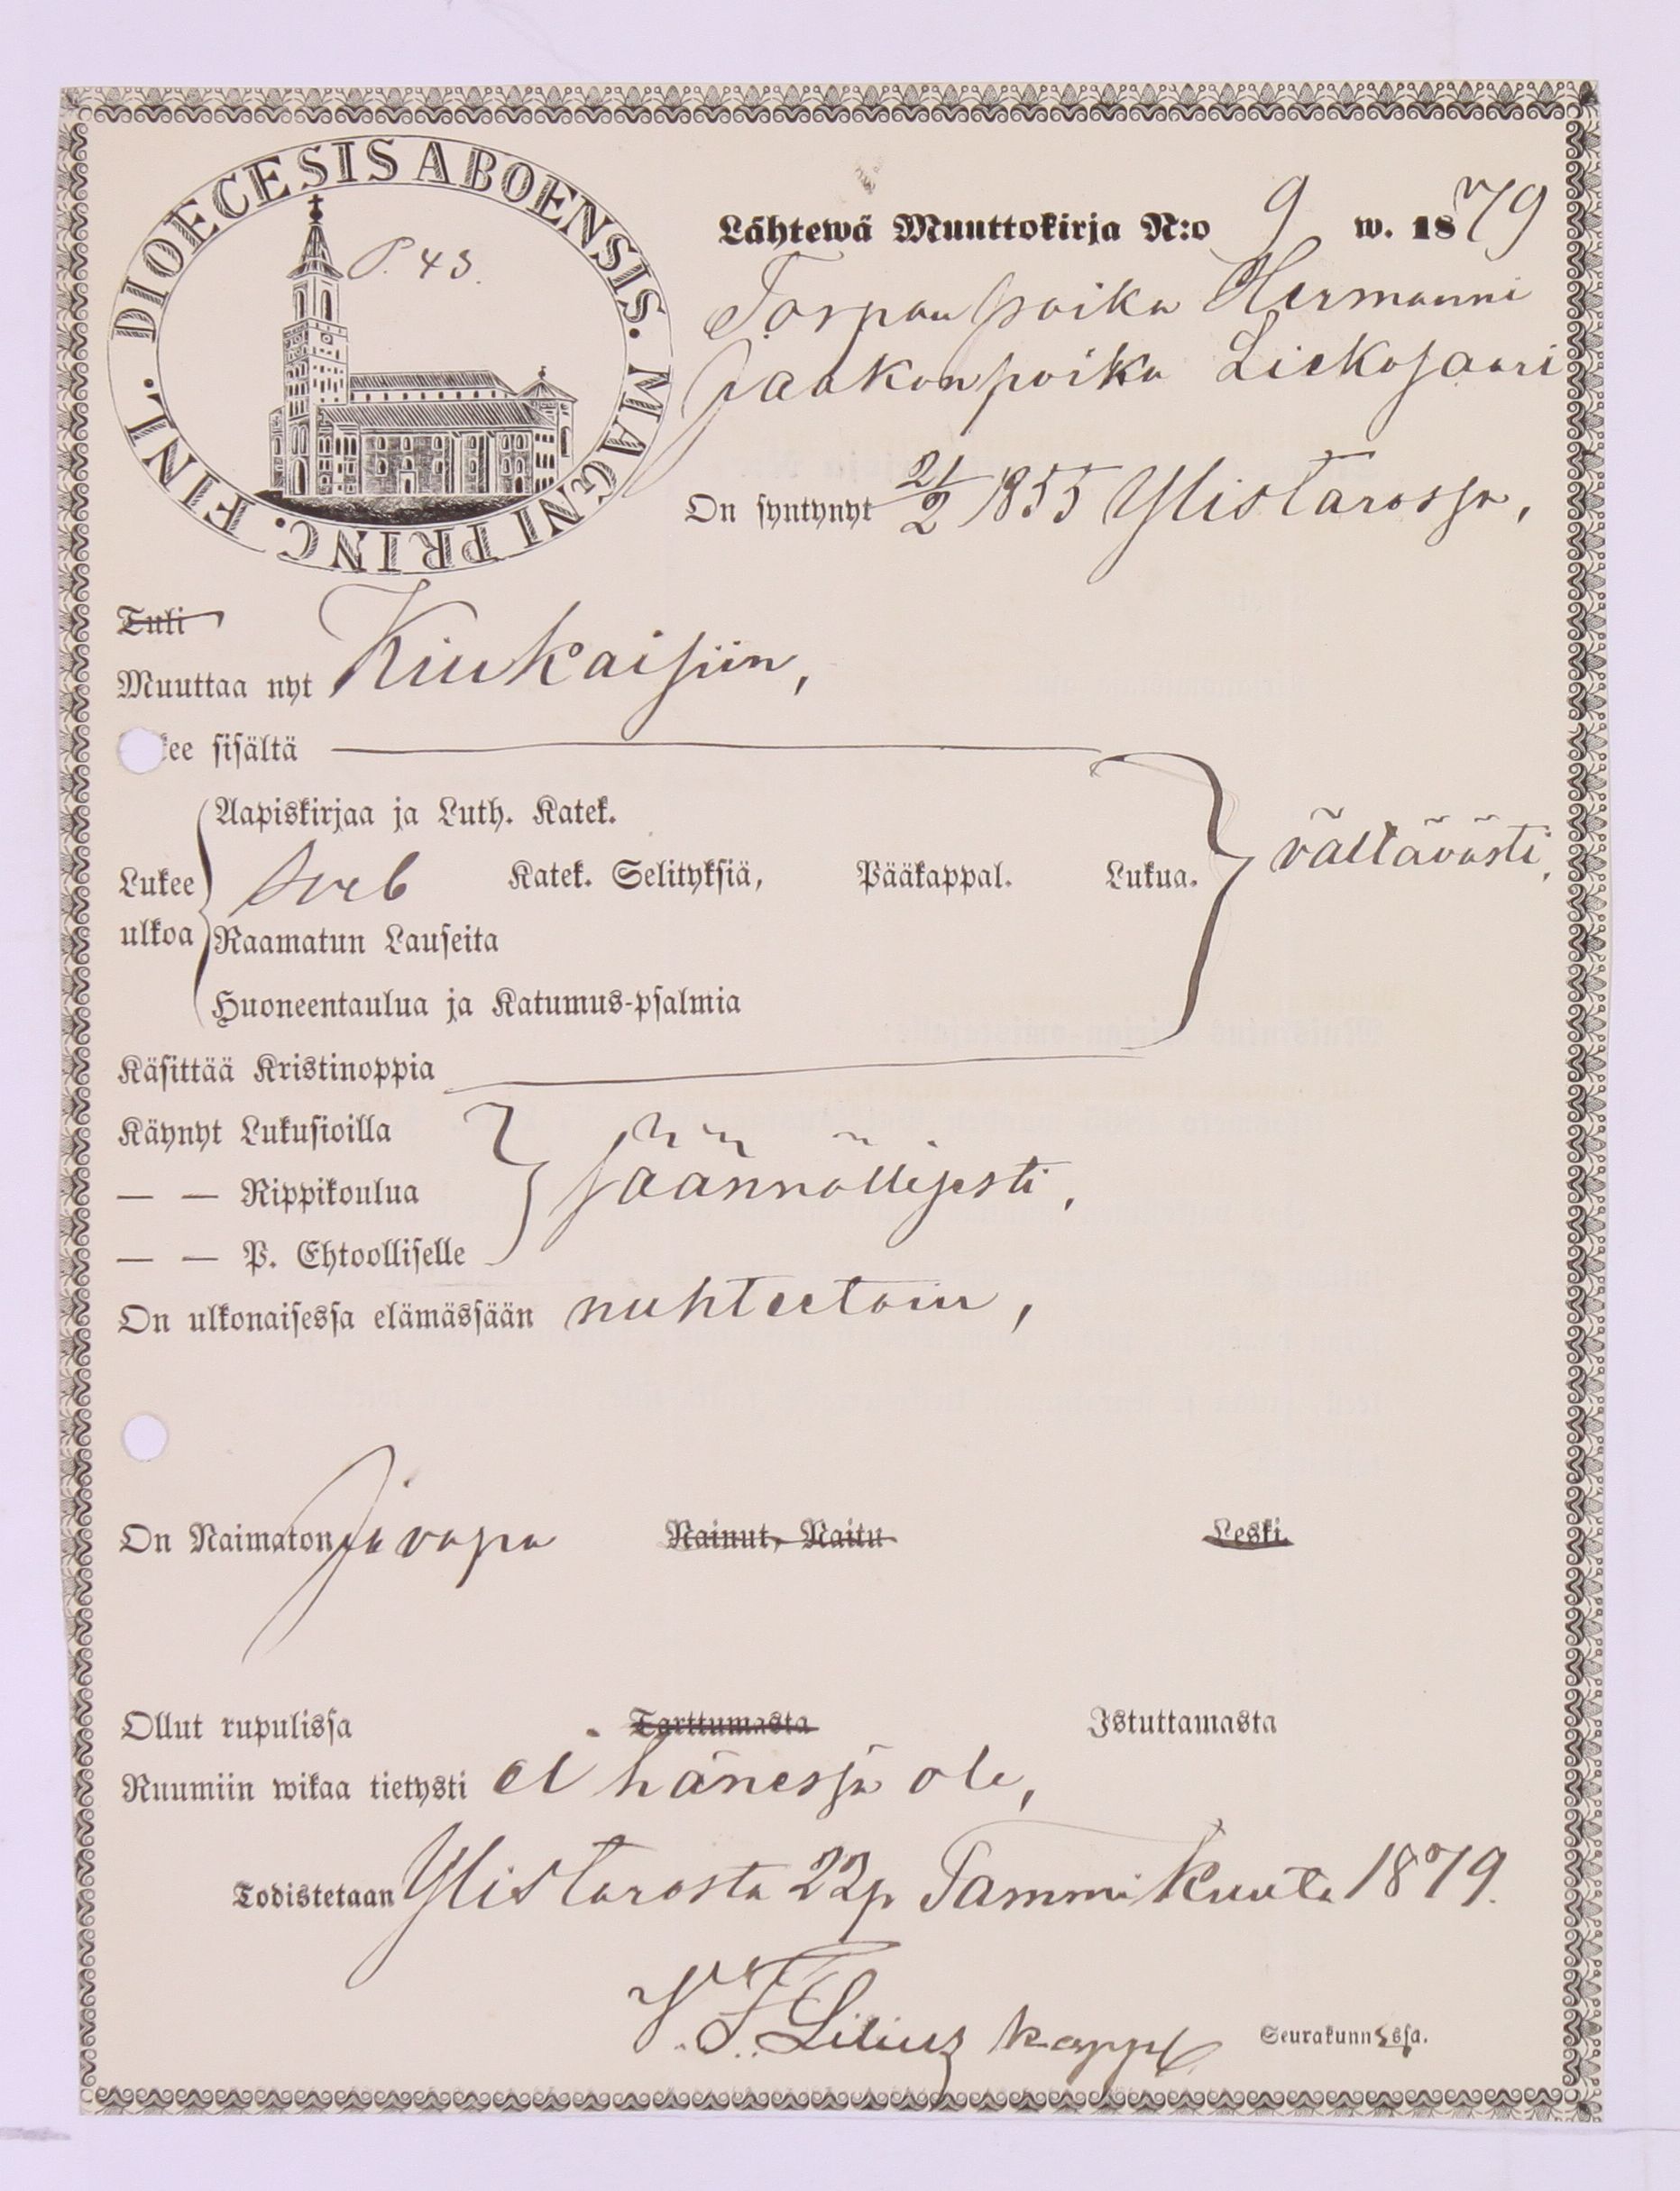 DIOECESIS ABOENSIS. MAGNI PRINC. FINL.
P. 43.
Lähtewä Muuttokirja N:o 9 w. 1879
Torpan poika Hermanni
Jaakonpoika Liekosaari
On syntynyt 21/2 1855 Ylistarossa,
Tuli
Muuttaa nyt Kiukaisiin,
kee sisältä
Aapiskirjaa ja Luth. Katek.
Lukee Sveb Katek. Selityksiä, Pääkappal. Lukua. välttävästi,
ulkoa Raamatun Lauseita
Huoneentaulua ja Katumus-psalmia
Käsittää Kristinoppia
Käynyt Lukusioilla
— — Rippikoulua säännöllisesti,
— — P. Ehtoolliselle
On ulkonaisessa elämässään nuhteetoin,
On Naimaton ja vapa Nainut, Naitu Leski
Ollut rupulissa Tarttumasta Istuttamasta
Ruumiin wikaa tietysti ei hänessä ole,
Todistetaan Ylistarosta 22p Tammikuuta 1879.
V. F. Lilius kappl. Seurakunnassa.